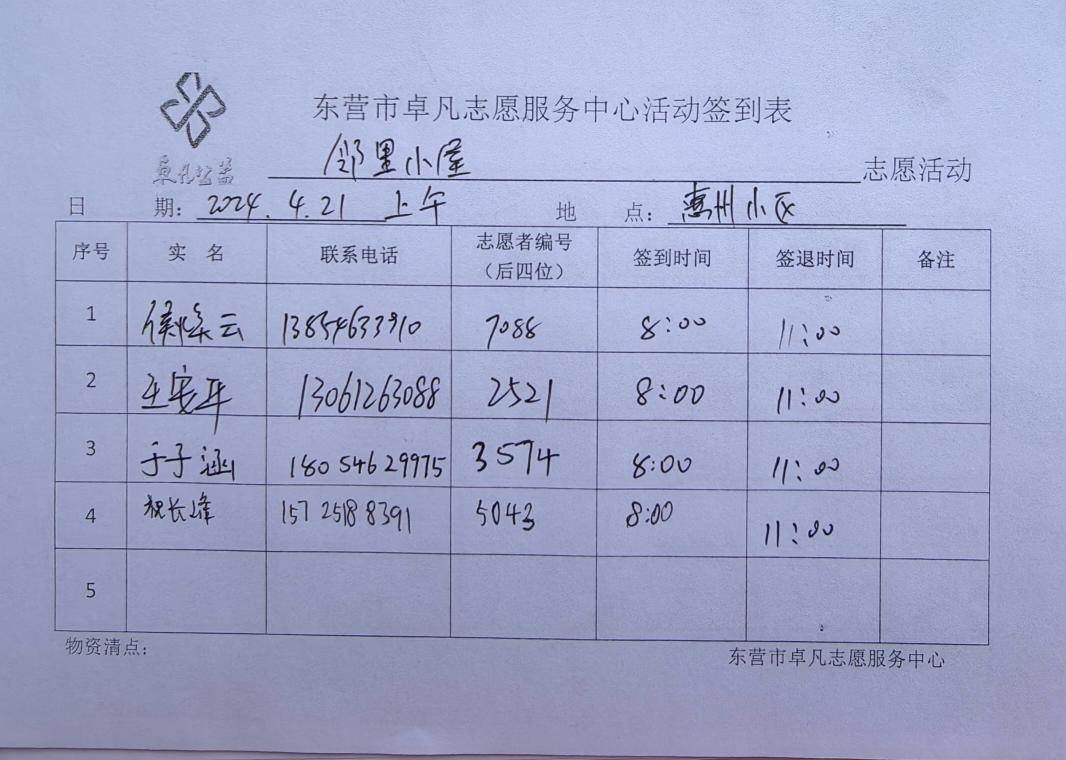 东营市卓凡志愿服务中心活动签到表
卓凡公益
邻里小屋 志愿活动
日 期: 2024.4.21 上午 地 点: 惠州小区
序号 实 名 联系电话 志愿者编号（后四位） 签到时间 签退时间 备注
1 侯焕云 13854633910 7088 8:00 11:00
2 王安平 13061263088 2521 8:00 11:00
3 于子涵 18054629975 3574 8:00 11:00
4 祝长峰 15725188391 5043 8:00 11:00
5
物资清点:
东营市卓凡志愿服务中心